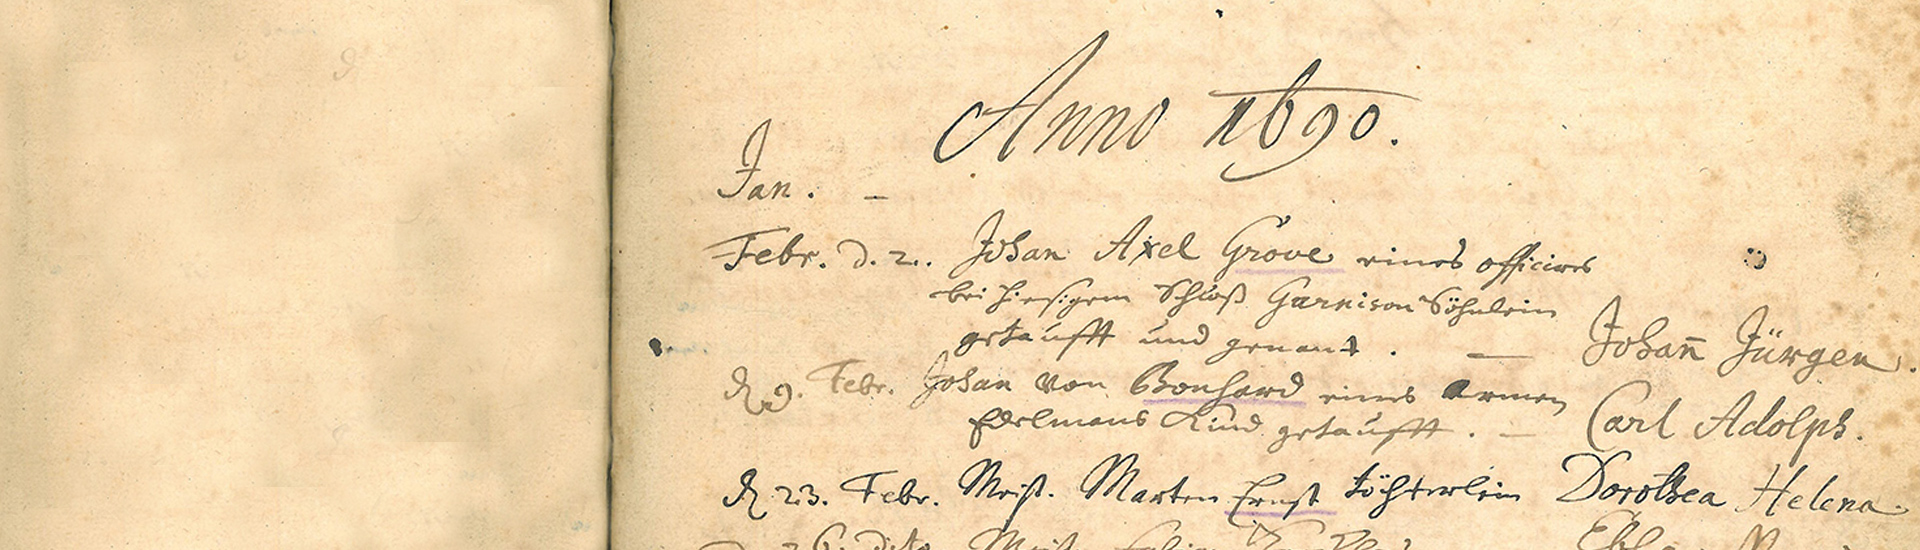 Anno 1690.
Jan. –
Febr. d. 2. Johan Axel Grove eines officirers
bei hiesigem Schloß Garnison Söhnlein
getaufft und genant. — Johan̄ Jürgen.
d 9. Febr. Johan von Bonhard eines Armen
Edelmans Kind getaufft. — Carl Adolph.
d 23. Febr. Meist. Marten Ernst töchterlein Dorothea Helena.
26. dito Meist.